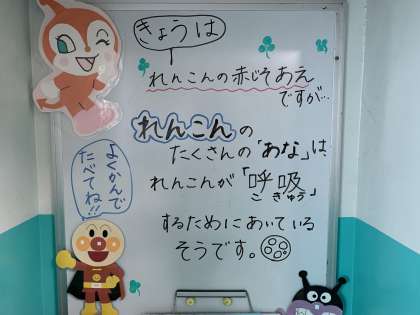 きょうは
れんこんの赤じそあえ
ですが…
れんこんの
たくさんの「あな」は、
れんこんが「呼吸」
こきゅう
するためにあいている
そうです。
よくかんで
たべてね!!